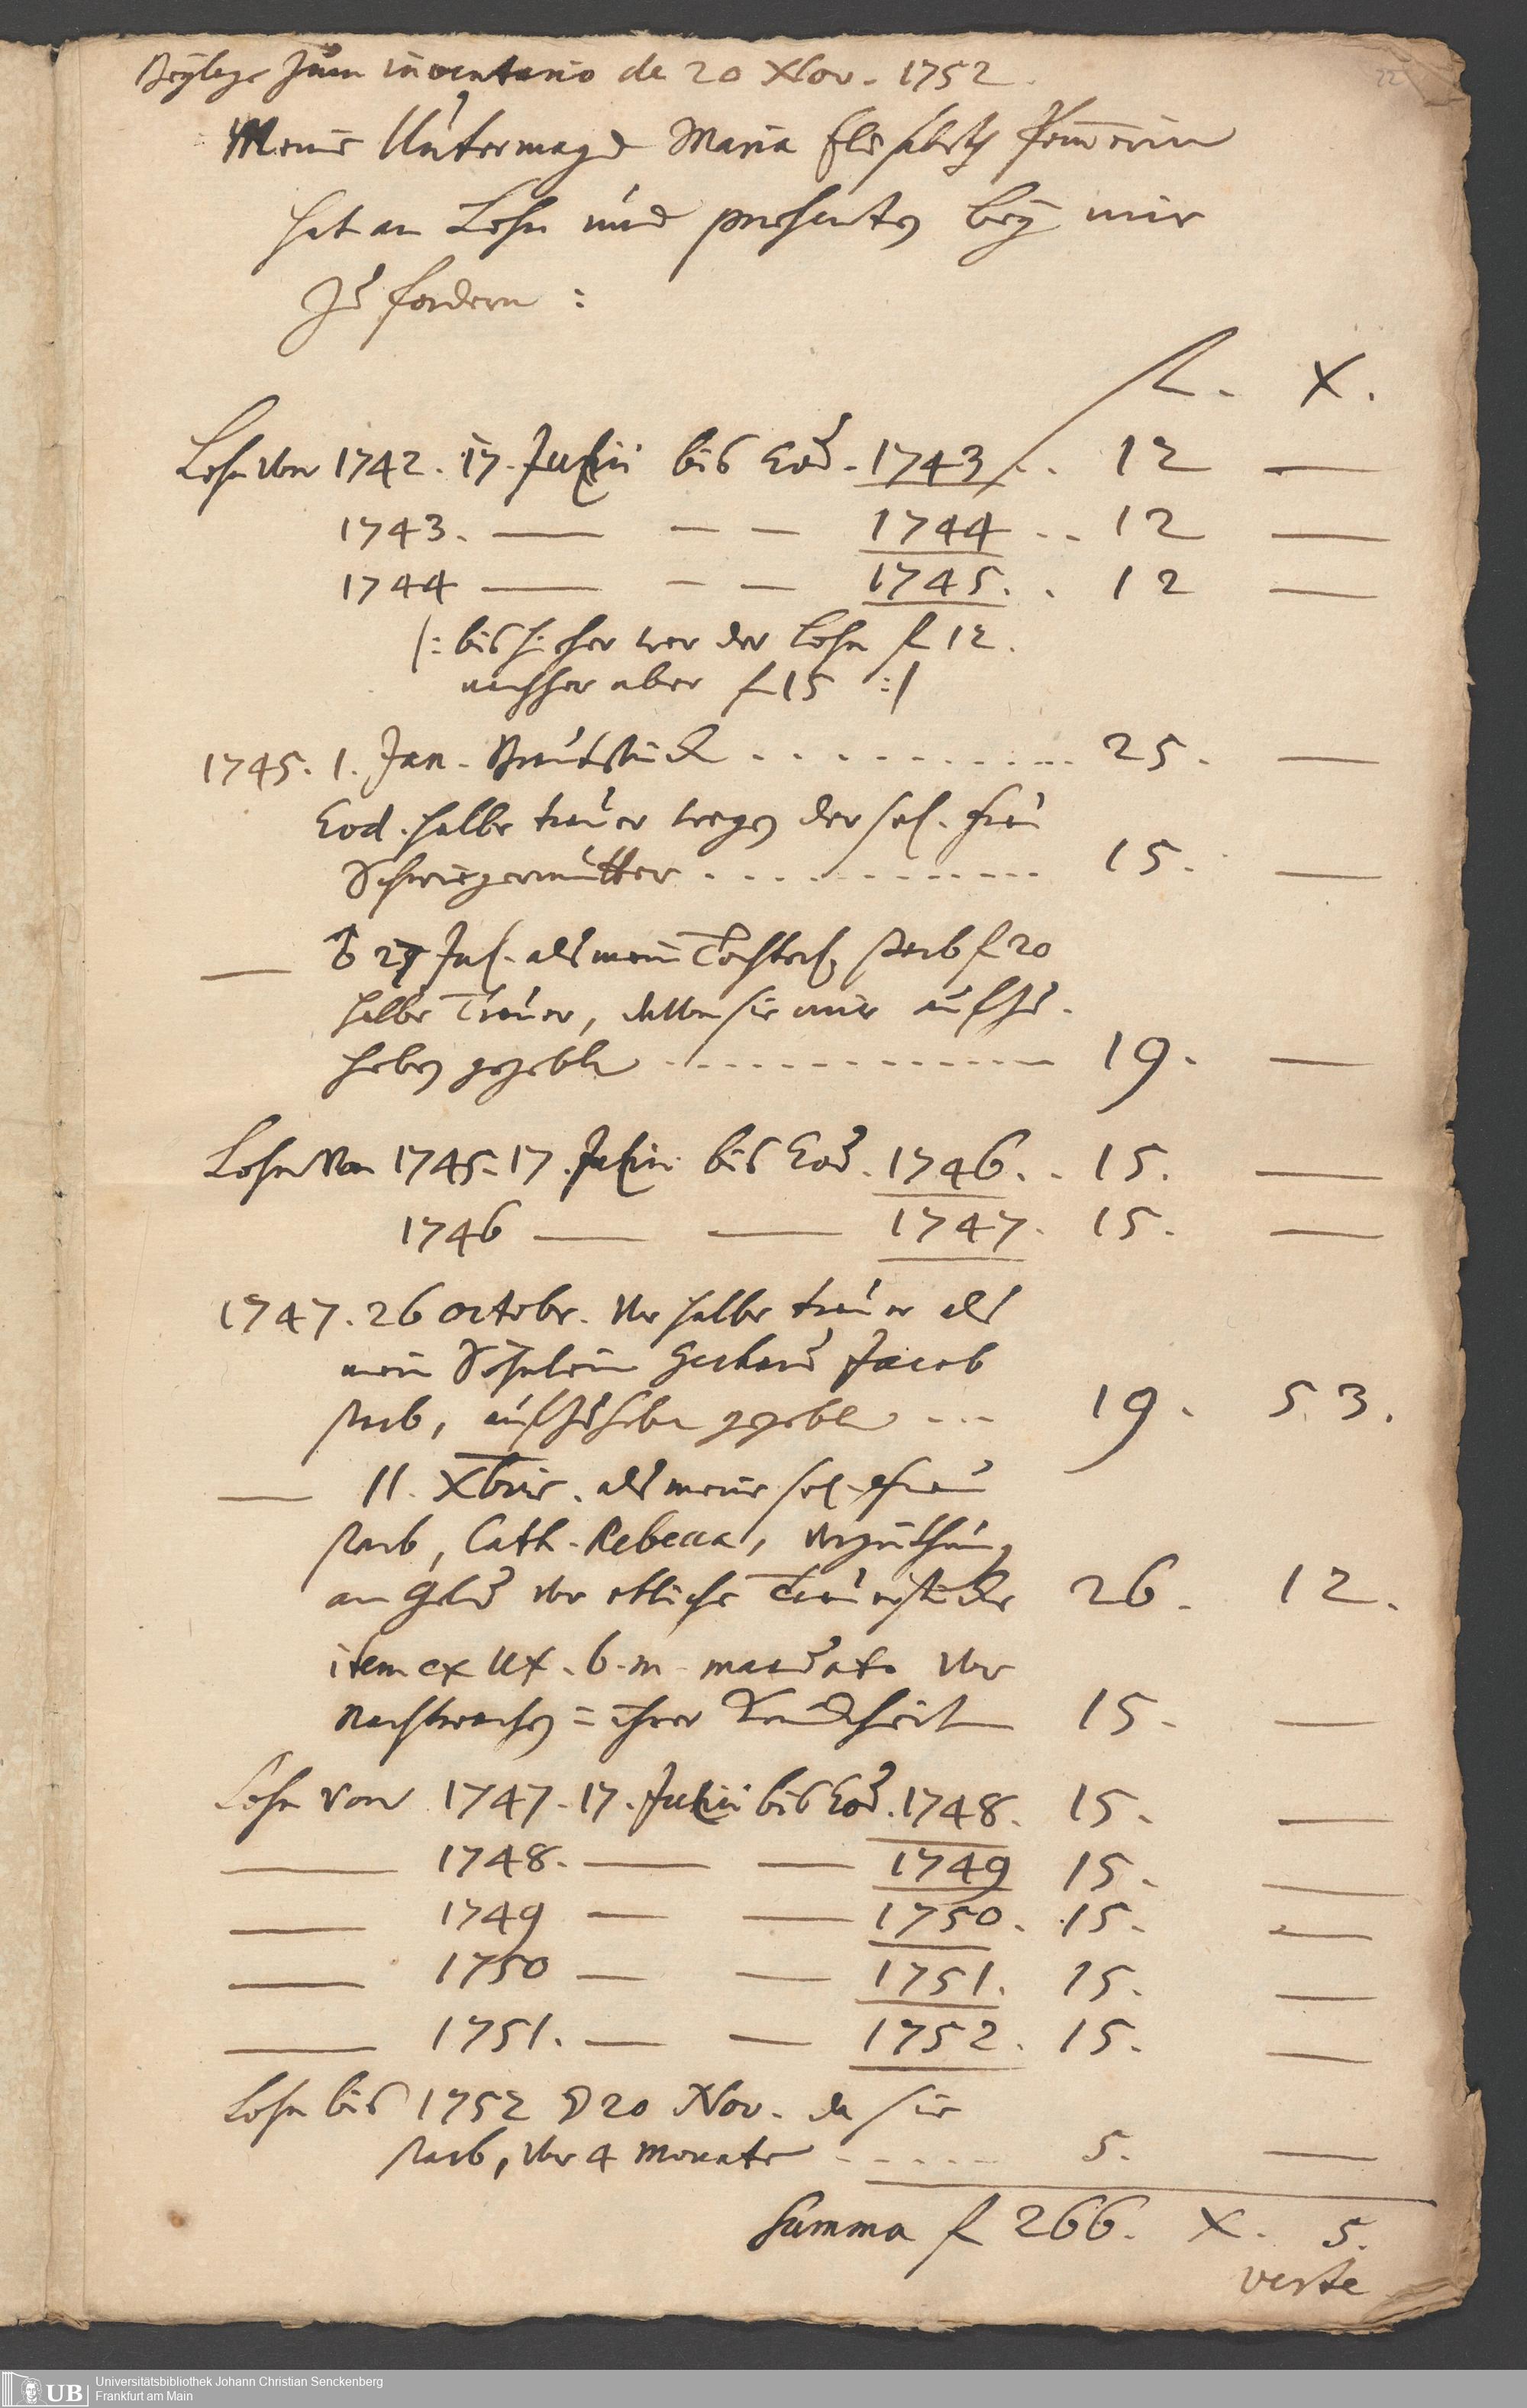 Beylage zum inventario de 20 Nov. 1752.
22
Meine Untermagd Maria Elisabeth
hat an Lohn und presenten bey mir
zu fordern :
f. X.
Lohn von 1742. 17. Julii bis Eod. 1743 .. 12 —
1743. — — — 1744 .. 12 —
1744 — — — 1745. . 12 —
/: bis hieher war der Lohn f 12.
nachher aber f 15 :/
1745. 1. Jan. Brautstück . . . . . . . . . . . 25. —
Eod. halbe trauer wegen der sel. Frau
Schwiegermutter . . . . . . . . . . . . 15. —
— 27 Jul. als mein Töchterl. starb f 20
halbe Trauer, davon sie mir aufzu-
heben gegeben - - - - - - - - - - - - - 19. —
Lohn von 1745. 17. Julii bis Eod. 1746. . 15. —
1746 — — 1747. 15. —
1747. 26 octobr. vor halbe trauer als
mein Söhnlein Gerhard Jacob
starb, aufzuheben gegeben - - - 19. 53.
— 11. Xbris. als meine sel. Frau
starb, Cath. Rebecca, Vergüthung
an Geld vor etliche Trauerstücke 26. 12.
item ex ux. b. m. mandato vor
Nachtwachen in ihrer Kranckheit 15. —
Lohn von 1747. 17. Julii bis Eod. 1748. 15. —
— 1748. — — 1749 15. —
— 1749 — — 1750. 15. —
— 1750 — — 1751. 15. —
— 1751. — — 1752. 15. —
Lohn bis 1752 20 Nov. da sie
starb, vor 4 Monate - - - - - 5. —
Summa f 266. X. 5.
verte
UB Universitätsbibliothek Johann Christian Senckenberg
Frankfurt am Main